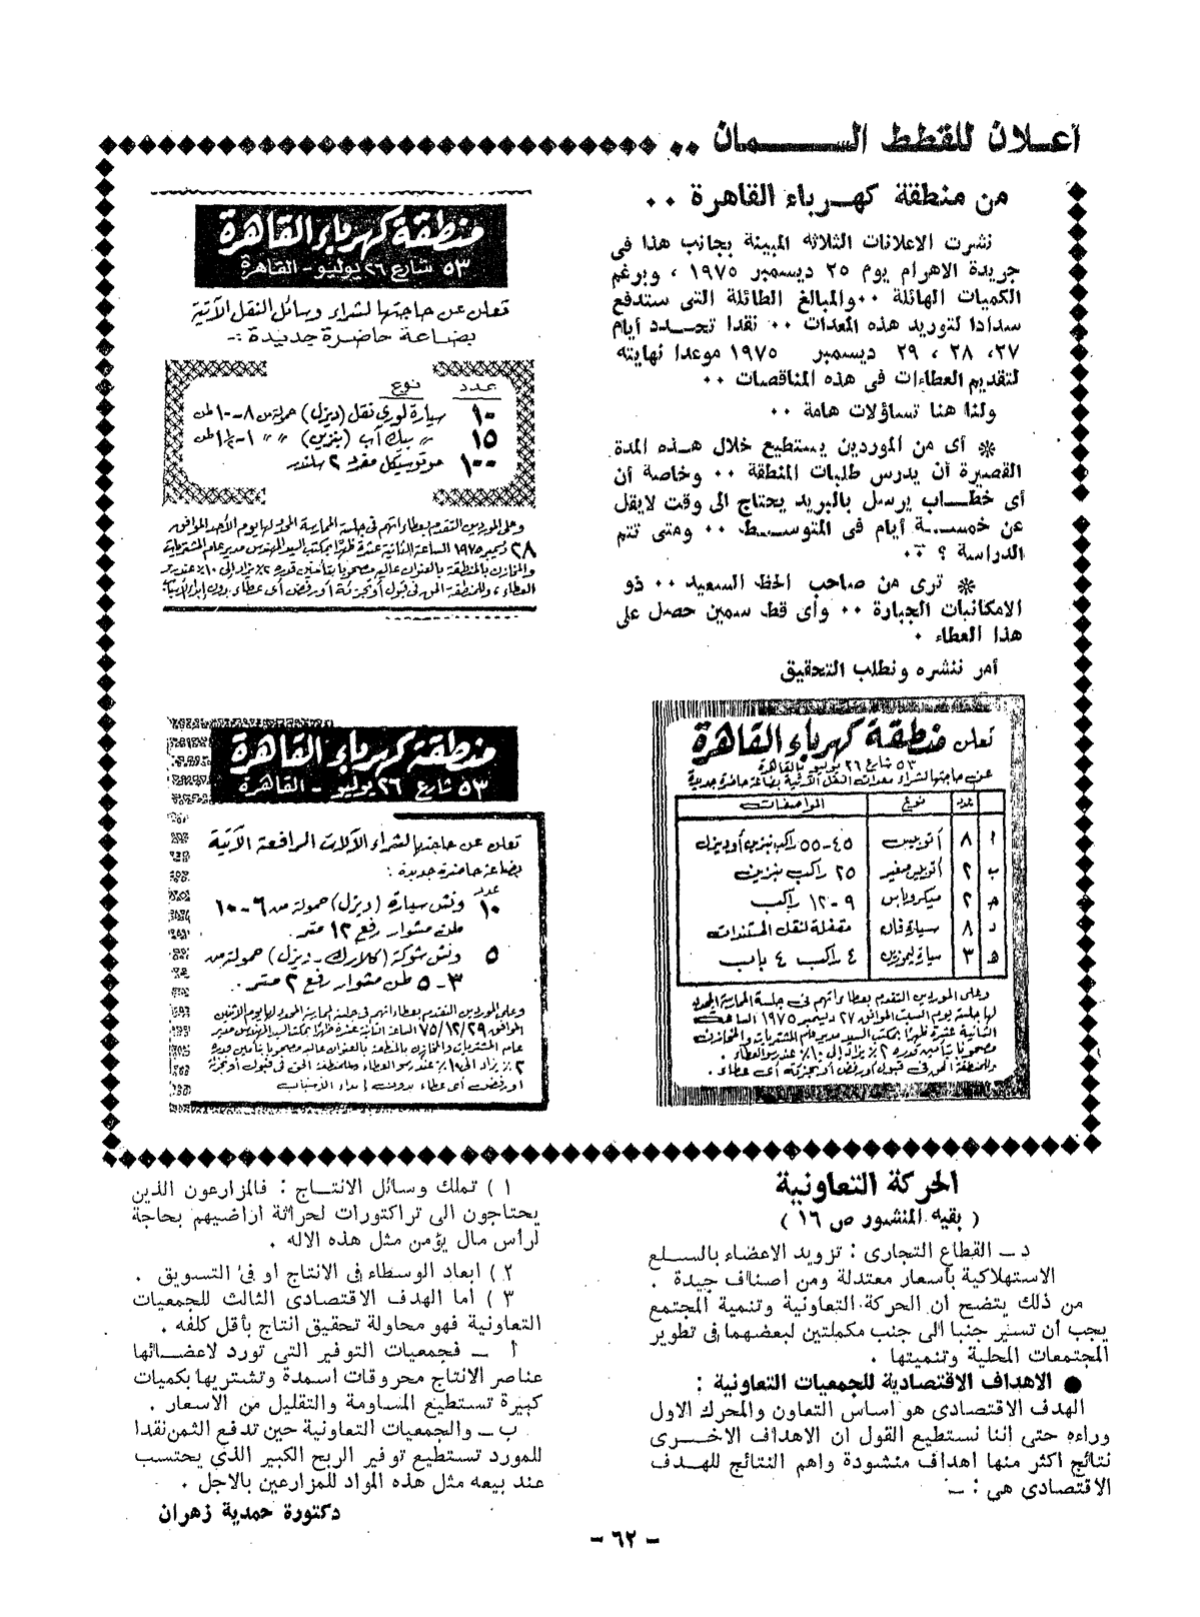 أعلان للقطط السمان ..
من منطقة كهرباء القاهرة ..
نشرت الاعلانات الثلاثه المبينة بجانب هذا فى
جريدة الاهرام يوم ٢٥ ديسمبر ١٩٧٥ ، وبرغم
الكميات الهائلة .. والمبالغ الطائلة التى ستدفع
سدادا لتوريد هذه المعدات .. نقدا تحدد أيام
٢٧، ٢٨ ، ٢٩ ديسمبر ١٩٧٥ موعدا نهايته
لتقديم العطاءات فى هذه المناقصات ..
ولنا هنا تساؤلات هامة ..
※ أى من الموردين يستطيع خلال هذه المدة
القصيرة أن يدرس طلبات المنطقة .. وخاصة أن
أى خطاب يرسل بالبريد يحتاج الى وقت لايقل
عن خمسة أيام فى المتوسط .. ومتى تتم
الدراسة ؟ ..
※ ترى من صاحب الحظ السعيد .. ذو
الامكانيات الجبارة .. وأى قط سمين حصل على
هذا العطاء .
أمر ننشره ونطلب التحقيق
منطقة كهرباء القاهرة
٥٣ شارع ٢٦ يوليو - القاهرة
تعلن عن حاجتها لشراء وسائل النقل الآتية
بضاعة حاضرة جديدة :-
عدد نوع
١٠ سيارة لورى نقل (ديزل) حمولة من ٨-١٠ طن
١٥ 〃 بيك أب (بنزين) 〃 〃 ١-١½ طن
١٠٠ موتوسيكل مفرد ٢ سلندر
وعلى الموردين التقدم بعطاءاتهم فى جلسة الممارسة المحدد لها يوم الأحد الموافق
٢٨ ديسمبر ١٩٧٥ الساعة الثانية عشرة ظهرا بمكتب السيد المهندس مدير عام المشتريات
والمخازن بالمنطقة بالعنوان عاليه مصحوبا بتأمين قدره ٢٪ يزاد إلى ١٠٪ عند رسو
العطاء ، وللمنطقة الحق فى قبول أو تجزئة أو رفض أى عطاء بدون إبداء الأسباب
تعلن منطقة كهرباء القاهرة
٥٣ شارع ٢٦ يوليو بالقاهرة
عن حاجتها لشراء معدات النقل الآتية بضاعة حاضرة جديدة
عدد نوع المواصفات
أ ٨ أتوبيس ٤٥-٥٥ راكب بنزين أو ديزل
ب ٢ أتوبيس صغير ٢٥ راكب بنزين
جـ ٢ ميكروباص ٩-١٢ راكب
د ٨ سيارة فان مقفلة لنقل المستندات
هـ ٣ سيارة ليموزين ٤ راكب ٤ باب
وعلى الموردين التقدم بعطاءاتهم فى جلسة الممارسة المحدد
لها جلسة يوم السبت الموافق ٢٧ ديسمبر ١٩٧٥ الساعة
الثانية عشرة ظهرا بمكتب السيد مدير عام المشتريات والمخازن
مصحوبا بتأمين قدره ٢٪ يزاد إلى ١٠٪ عند رسو العطاء .
وللمنطقة الحق فى قبول أو رفض أو تجزئة أى عطاء .
منطقة كهرباء القاهرة
٥٣ شارع ٢٦ يوليو - القاهرة
تعلن عن حاجتها لشراء الآلات الرافعة الآتية
بضاعة حاضرة جديدة :
عدد
١٠ ونش سيارة (ديزل) حمولة من ٦-١٠
طن مشوار رفع ١٢ متر .
٥ ونش شوكة (كلارك - ديزل) حمولة من
٣-٥ طن مشوار رفع ٢ متر .
وعلى الموردين التقدم بعطاءاتهم فى جلسة الممارسة المحدد لها يوم الإثنين
الموافق ٧٥/١٢/٢٩ الساعة الثانية عشرة ظهرا بمكتب السيد المهندس مدير
عام المشتريات والمخازن بالمنطقة بالعنوان عاليه مصحوبا بتأمين قدره
٢٪ يزاد إلى ١٠٪ عند رسو العطاء وللمنطقة الحق فى قبول أو تجزئة
أو رفض أى عطاء بدون إبداء الأسباب
الحركة التعاونية
( بقيه المنشور ص ١٦ )
د ــ القطاع التجارى : تزويد الاعضاء بالسلع
الاستهلاكية بأسعار معتدلة ومن اصناف جيدة .
من ذلك يتضح أن الحركة التعاونية وتنمية المجتمع
يجب أن تسير جنبا الى جنب مكملتين لبعضهما فى تطوير
المجتمعات المحلية وتنميتها .
● الاهداف الاقتصادية للجمعيات التعاونية :
الهدف الاقتصادى هو اساس التعاون والمحرك الاول
وراءه حتى اننا نستطيع القول ان الاهداف الاخرى
نتائج اكثر منها اهداف منشودة واهم النتائج للهدف
الاقتصادى هى : ــ
١ ) تملك وسائل الانتاج : فالمزارعون الذين
يحتاجون الى تراكتورات لحراثة اراضيهم بحاجة
لرأس مال يؤمن مثل هذه الاله .
٢ ) ابعاد الوسطاء فى الانتاج او فى التسويق .
٣ ) أما الهدف الاقتصادى الثالث للجمعيات
التعاونية فهو محاولة تحقيق انتاج بأقل كلفه .
أ ــ فجمعيات التوفير التى تورد لاعضائها
عناصر الانتاج محروقات اسمدة وتشتريها بكميات
كبيرة تستطيع المساومة والتقليل من الاسعار .
ب ــ والجمعيات التعاونية حين تدفع الثمن نقدا
للمورد تستطيع توفير الربح الكبير الذي يحتسب
عند بيعه مثل هذه المواد للمزارعين بالاجل .
دكتورة حمدية زهران
- ٦٢ -